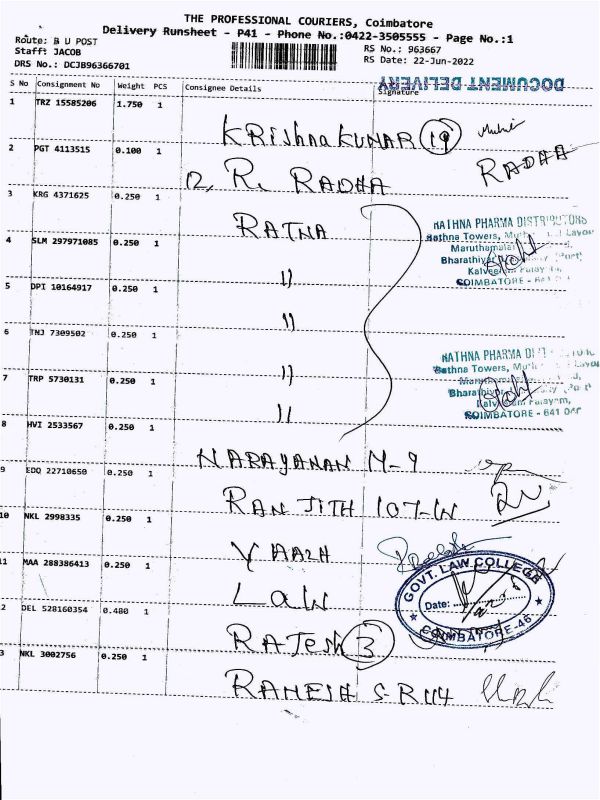 THE PROFESSIONAL COURIERS, Coimbatore
Delivery Runsheet - P41 - Phone No.:0422-3505555 - Page No.:1
Route: B U POST
Staff: JACOB
DRS No.: DCJB96366701
RS No.: 963667
RS Date: 22-Jun-2022
DOCUMENT DELIVERY
S No Consignment No Weight PCS Consignee Details Signature
1 TRZ 15585206 1.750 1
KRishna KUMAR 19
2 PGT 4113515 0.100 1
R. RADHA RADHA
3 KRG 4371625 0.250 1
RATNA
RATHNA PHARMA DISTRIBUTORS
Rathna Towers,
4 SLM 297971085 0.250 1
Maruthamalai
Bharathiyar (Port)
Kalveeram Palayam,
COIMBATORE - 641
"
5 DPI 10164917 0.250 1
"
6 TNJ 7309502 0.250 1
RATHNA PHARMA
Rathna Towers,
"
7 TRP 5730131 0.250 1
Bharathiyar
Palayam,
COIMBATORE - 641
"
8 HVI 2533567 0.250 1
NARAYANAN M-9
9 EDQ 22710650 0.250 1
RANJITH 107-W
10 NKL 2998335 0.250 1
YAAZH
11 MAA 288386413 0.250 1
LAW
GOVT. LAW COLLEGE
Date:
COIMBATORE-46
2 DEL 528160354 0.480 1
RAJESH 3
3 NKL 3002756 0.250 1
RAMESH S-R114